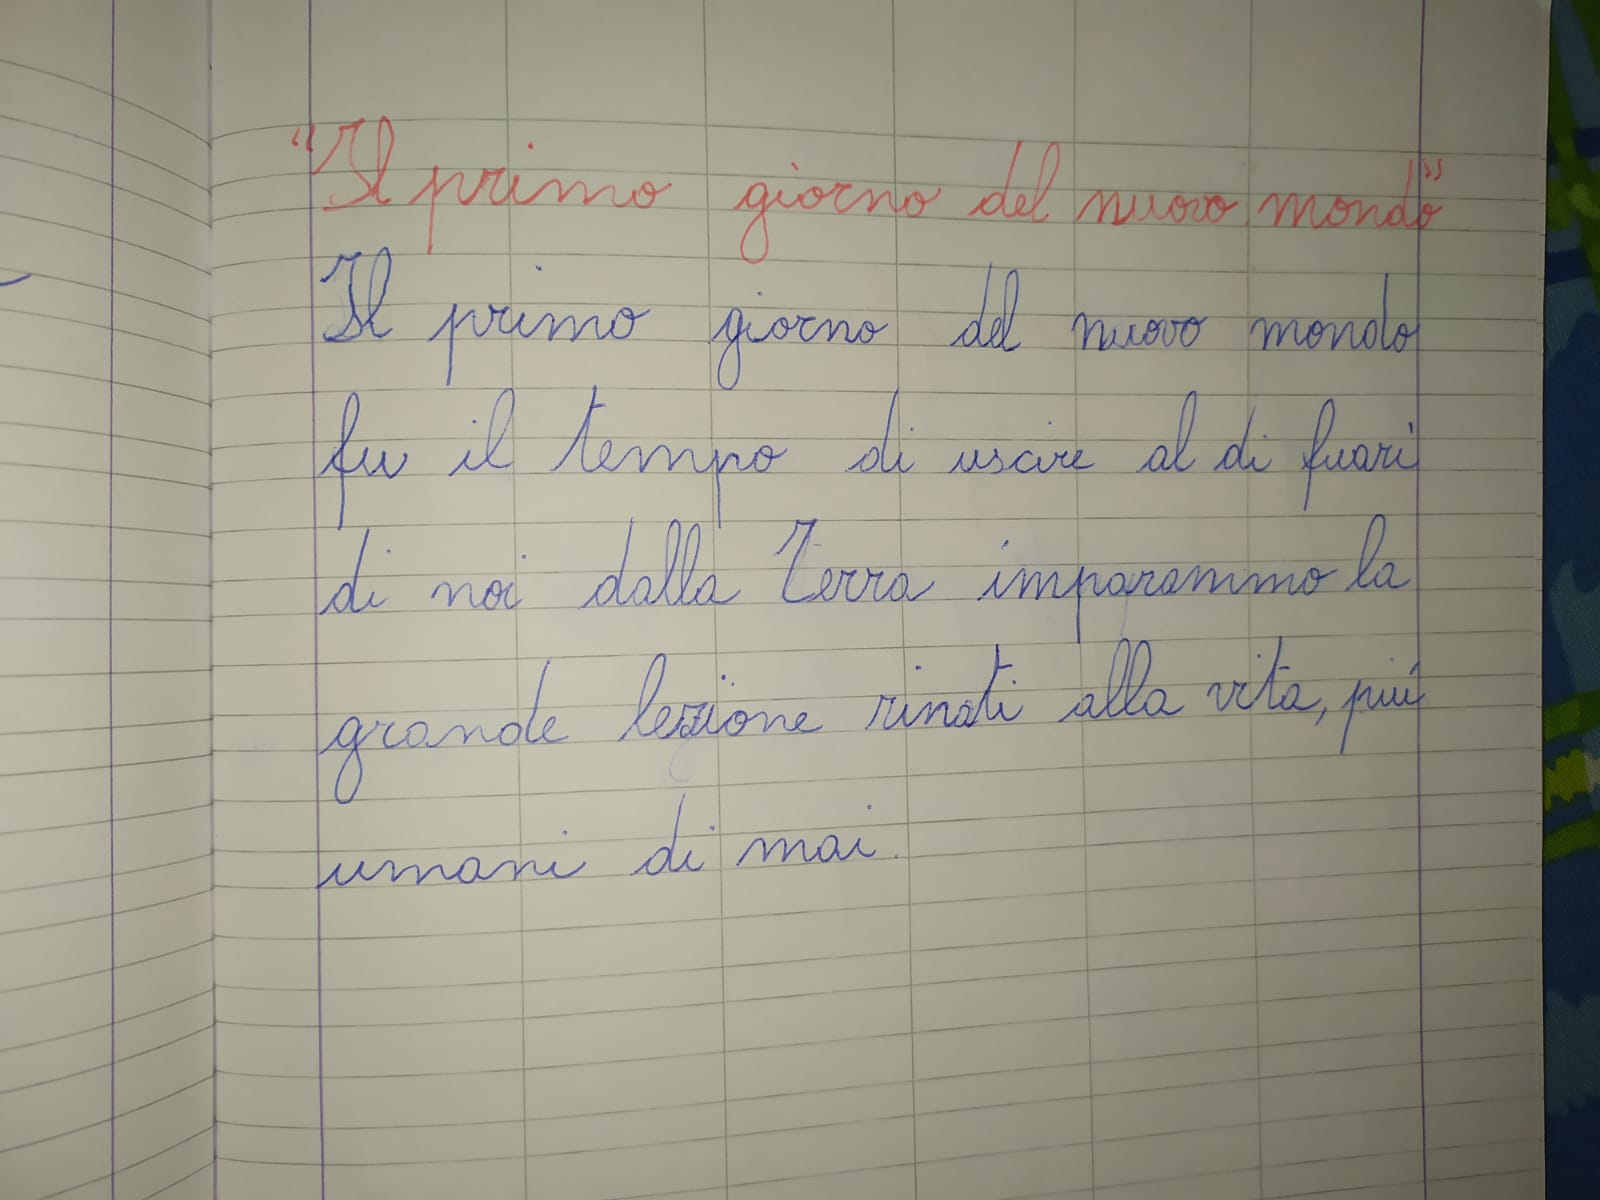 "Il primo giorno del nuovo mondo"
Il primo giorno del nuovo mondo
fu il tempo di uscire al di fuori
di noi dalla Terra imparammo la
grande lezione rinati alla vita, più
umani di mai.